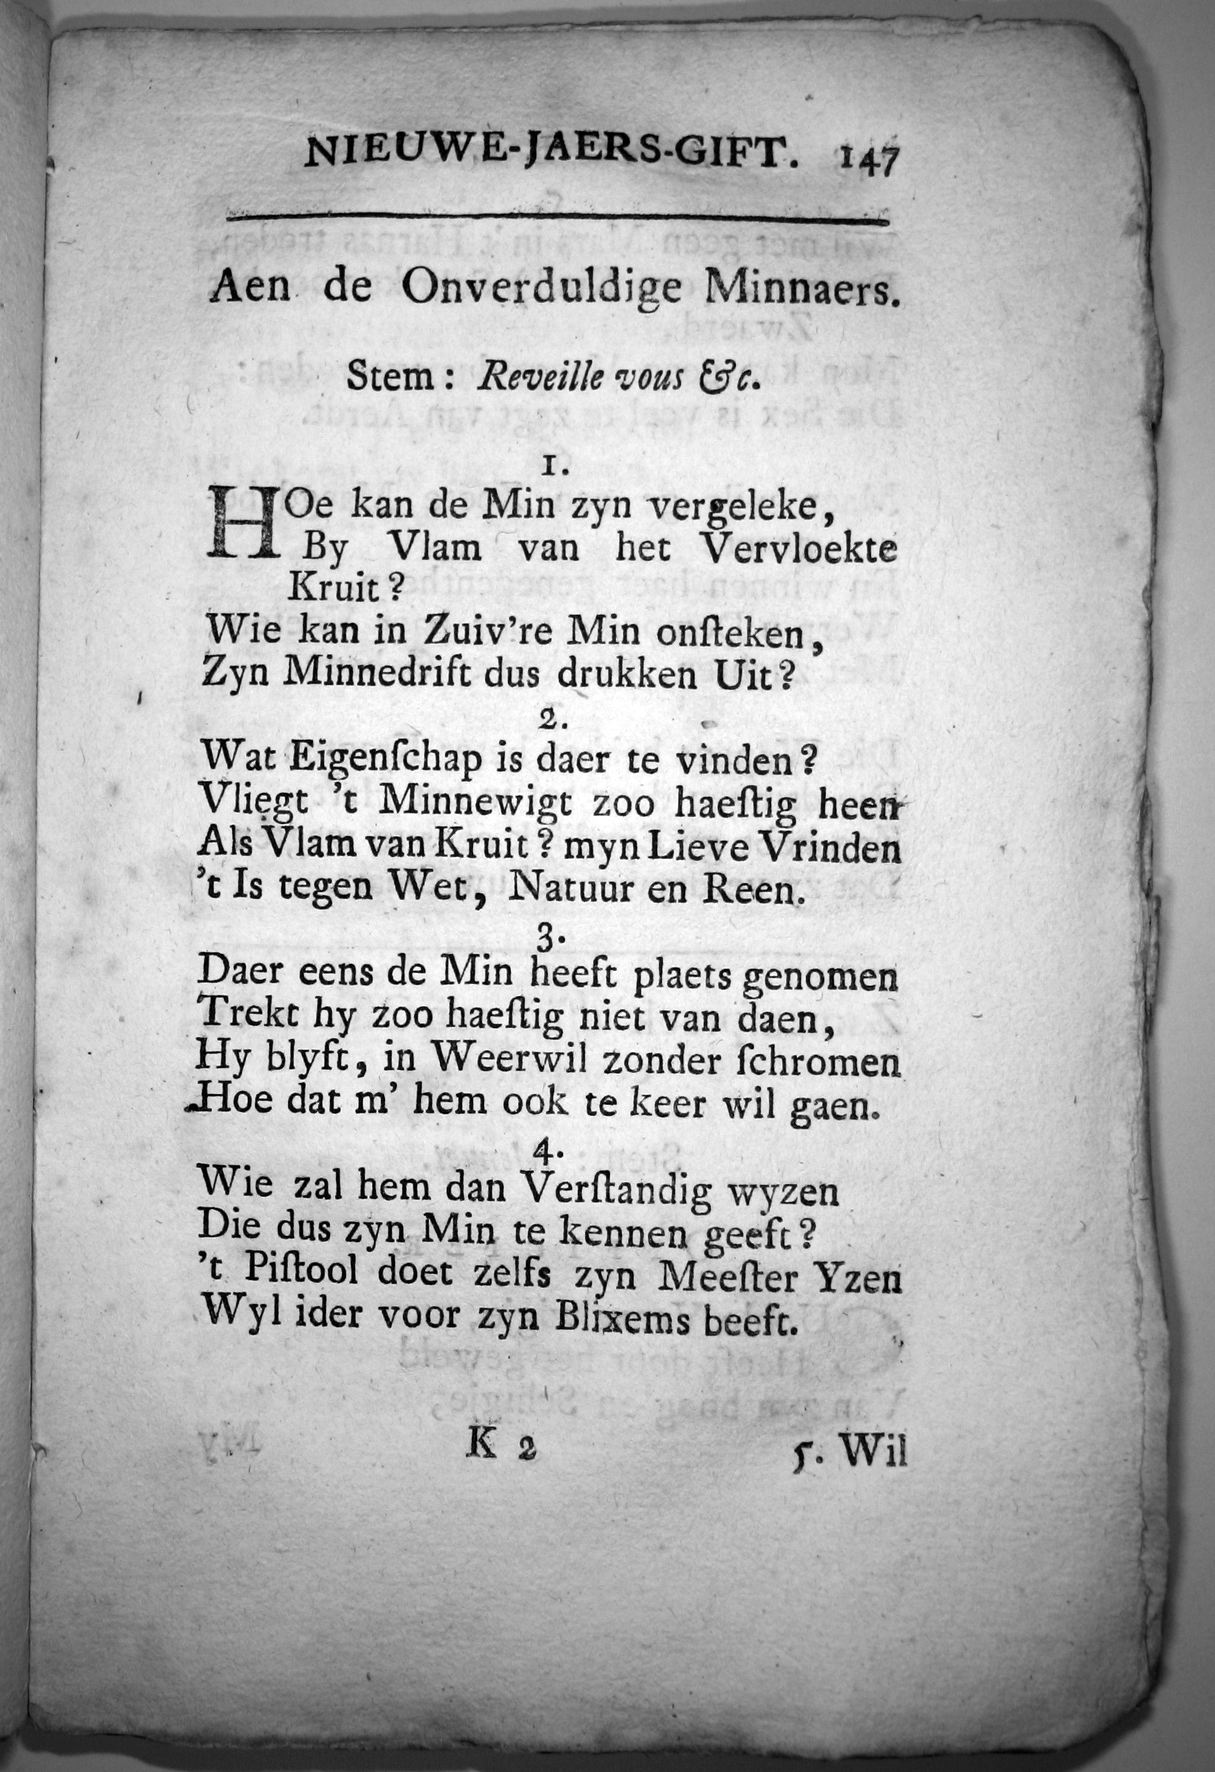 NIEUWE-JAERS-GIFT. 147
Aen de Onverduldige Minnaers.
Stem: Reveille vous &c.
1.
HOe kan de Min zyn vergeleke,
By Vlam van het Vervloekte
Kruit?
Wie kan in Zuiv're Min onſteken,
Zyn Minnedrift dus drukken Uit?
2.
Wat Eigenſchap is daer te vinden?
Vliegt 't Minnewigt zoo haeſtig heen
Als Vlam van Kruit? myn Lieve Vrinden
't Is tegen Wet, Natuur en Reen.
3.
Daer eens de Min heeft plaets genomen
Trekt hy zoo haeſtig niet van daen,
Hy blyft, in Weerwil zonder ſchromen
Hoe dat m' hem ook te keer wil gaen.
4.
Wie zal hem dan Verſtandig wyzen
Die dus zyn Min te kennen geeft?
't Piſtool doet zelfs zyn Meeſter Yzen
Wyl ider voor zyn Blixems beeft.
K 2 5. Wil